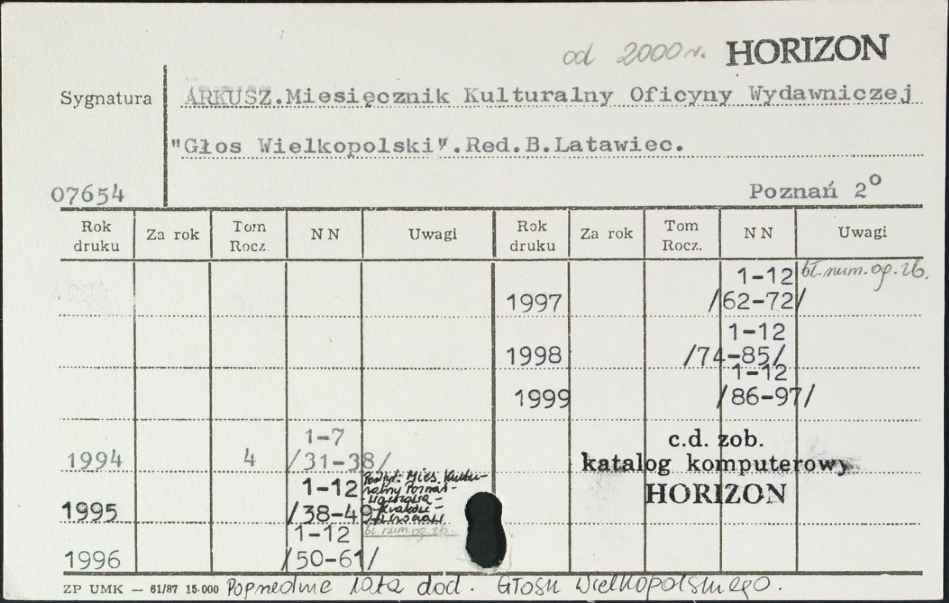 od 2000 r. HORIZON
Sygnatura ARKUSZ.Miesięcznik Kulturalny Oficyny Wydawniczej
"Głos Wielkopolski".Red.B.Latawiec.
07654 Poznań 2°
Rok druku Za rok Tom Rocz. NN Uwagi Rok druku Za rok Tom Rocz. NN Uwagi
1997 1-12 /62-72/ bł. num. og. zb.
1998 1-12 /74-85/
1999 1-12 /86-97/
1994 4 1-7 /31-38/
c.d. zob.
katalog komputerowy
HORIZON
1995 1-12 /38-49/ Podtyt.: Mies. Kultu-
ralny Poznań-
-Kraków-
bł. num. og. zb.
1996 1-12 /50-61/
ZP UMK — 61/87 15.000 Poprzednie lata dod. Głosu Wielkopolskiego.